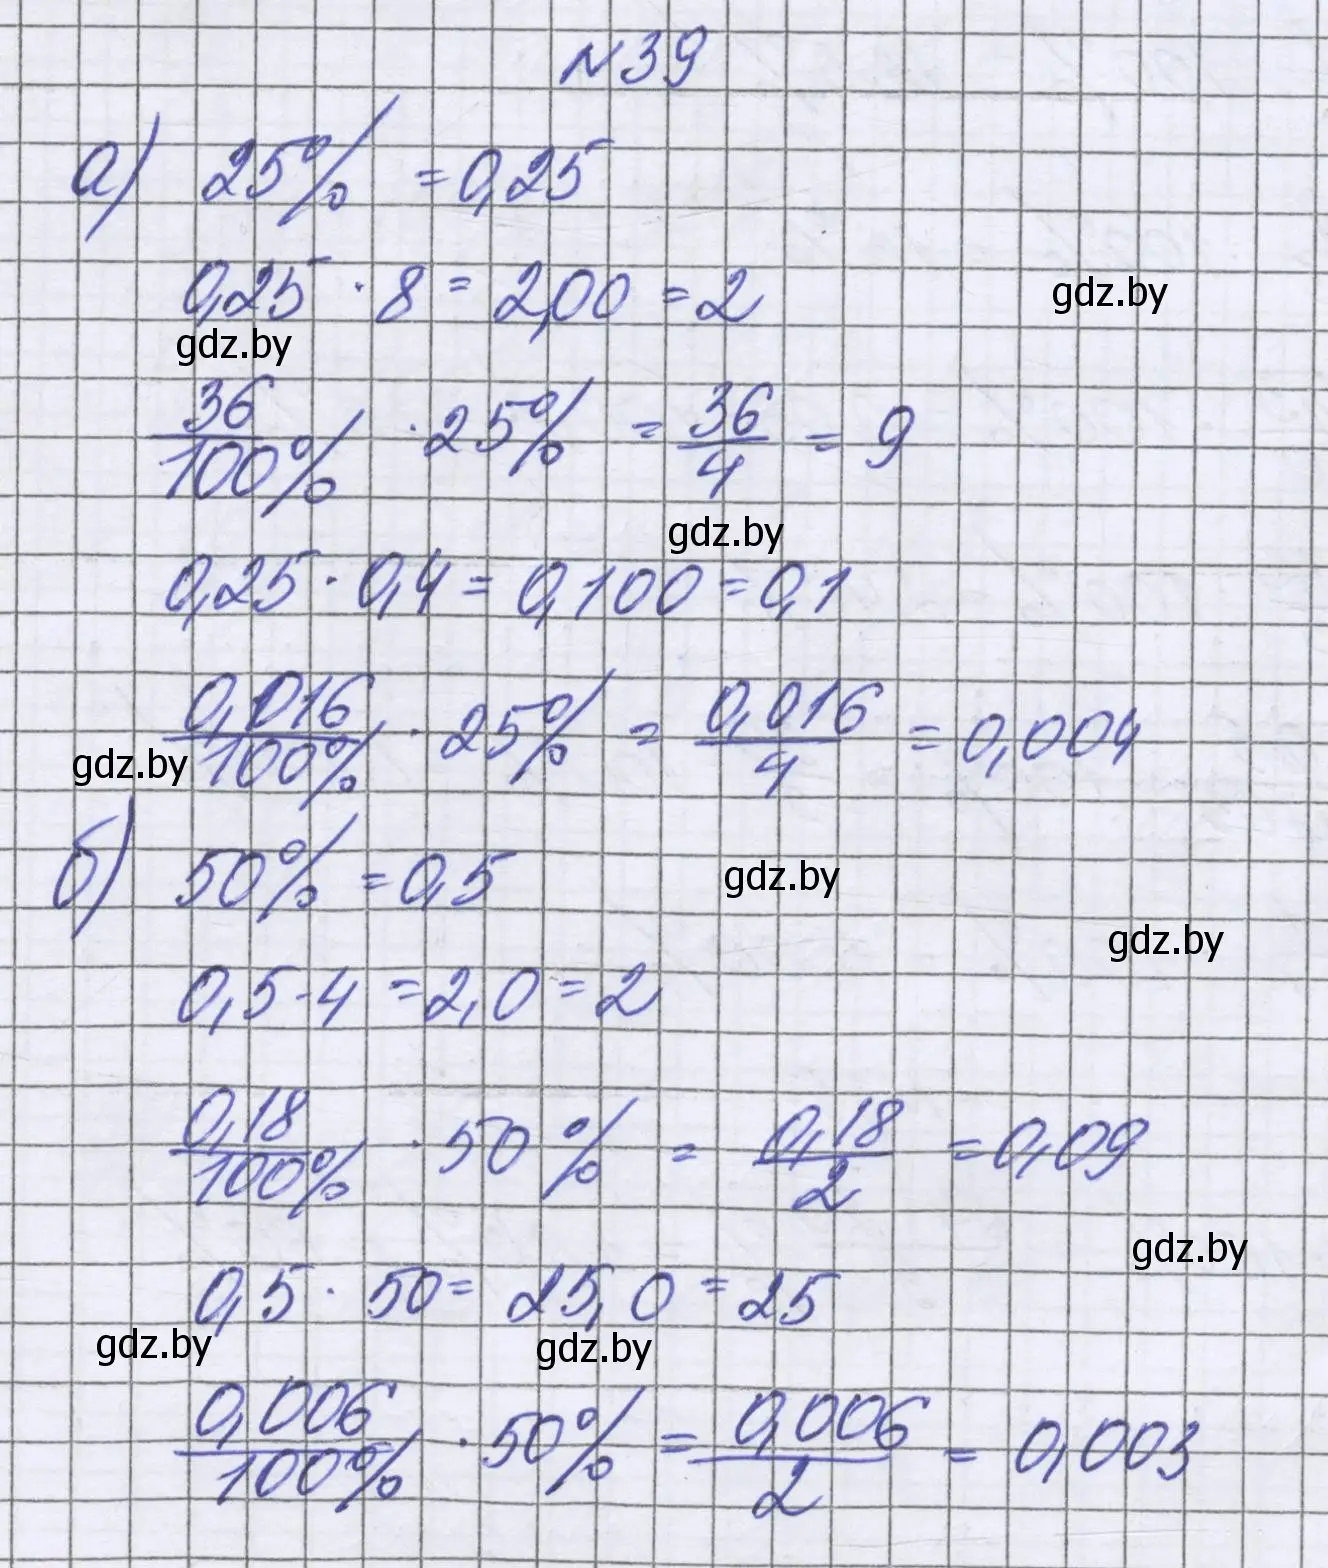 N39
а) 25% = 0,25
0,25 · 8 = 2,00 = 2
gdz.by
gdz.by
36/100% · 25% = 36/4 = 9
gdz.by
0,25 · 0,4 = 0,100 = 0,1
0,016/100% · 25% = 0,016/4 = 0,004
gdz.by
б) 50% = 0,5
gdz.by
gdz.by
0,5 · 4 = 2,0 = 2
0,18/100% · 50% = 0,18/2 = 0,09
gdz.by
0,5 · 50 = 25,0 = 25
gdz.by
gdz.by
0,006/100% · 50% = 0,006/2 = 0,003